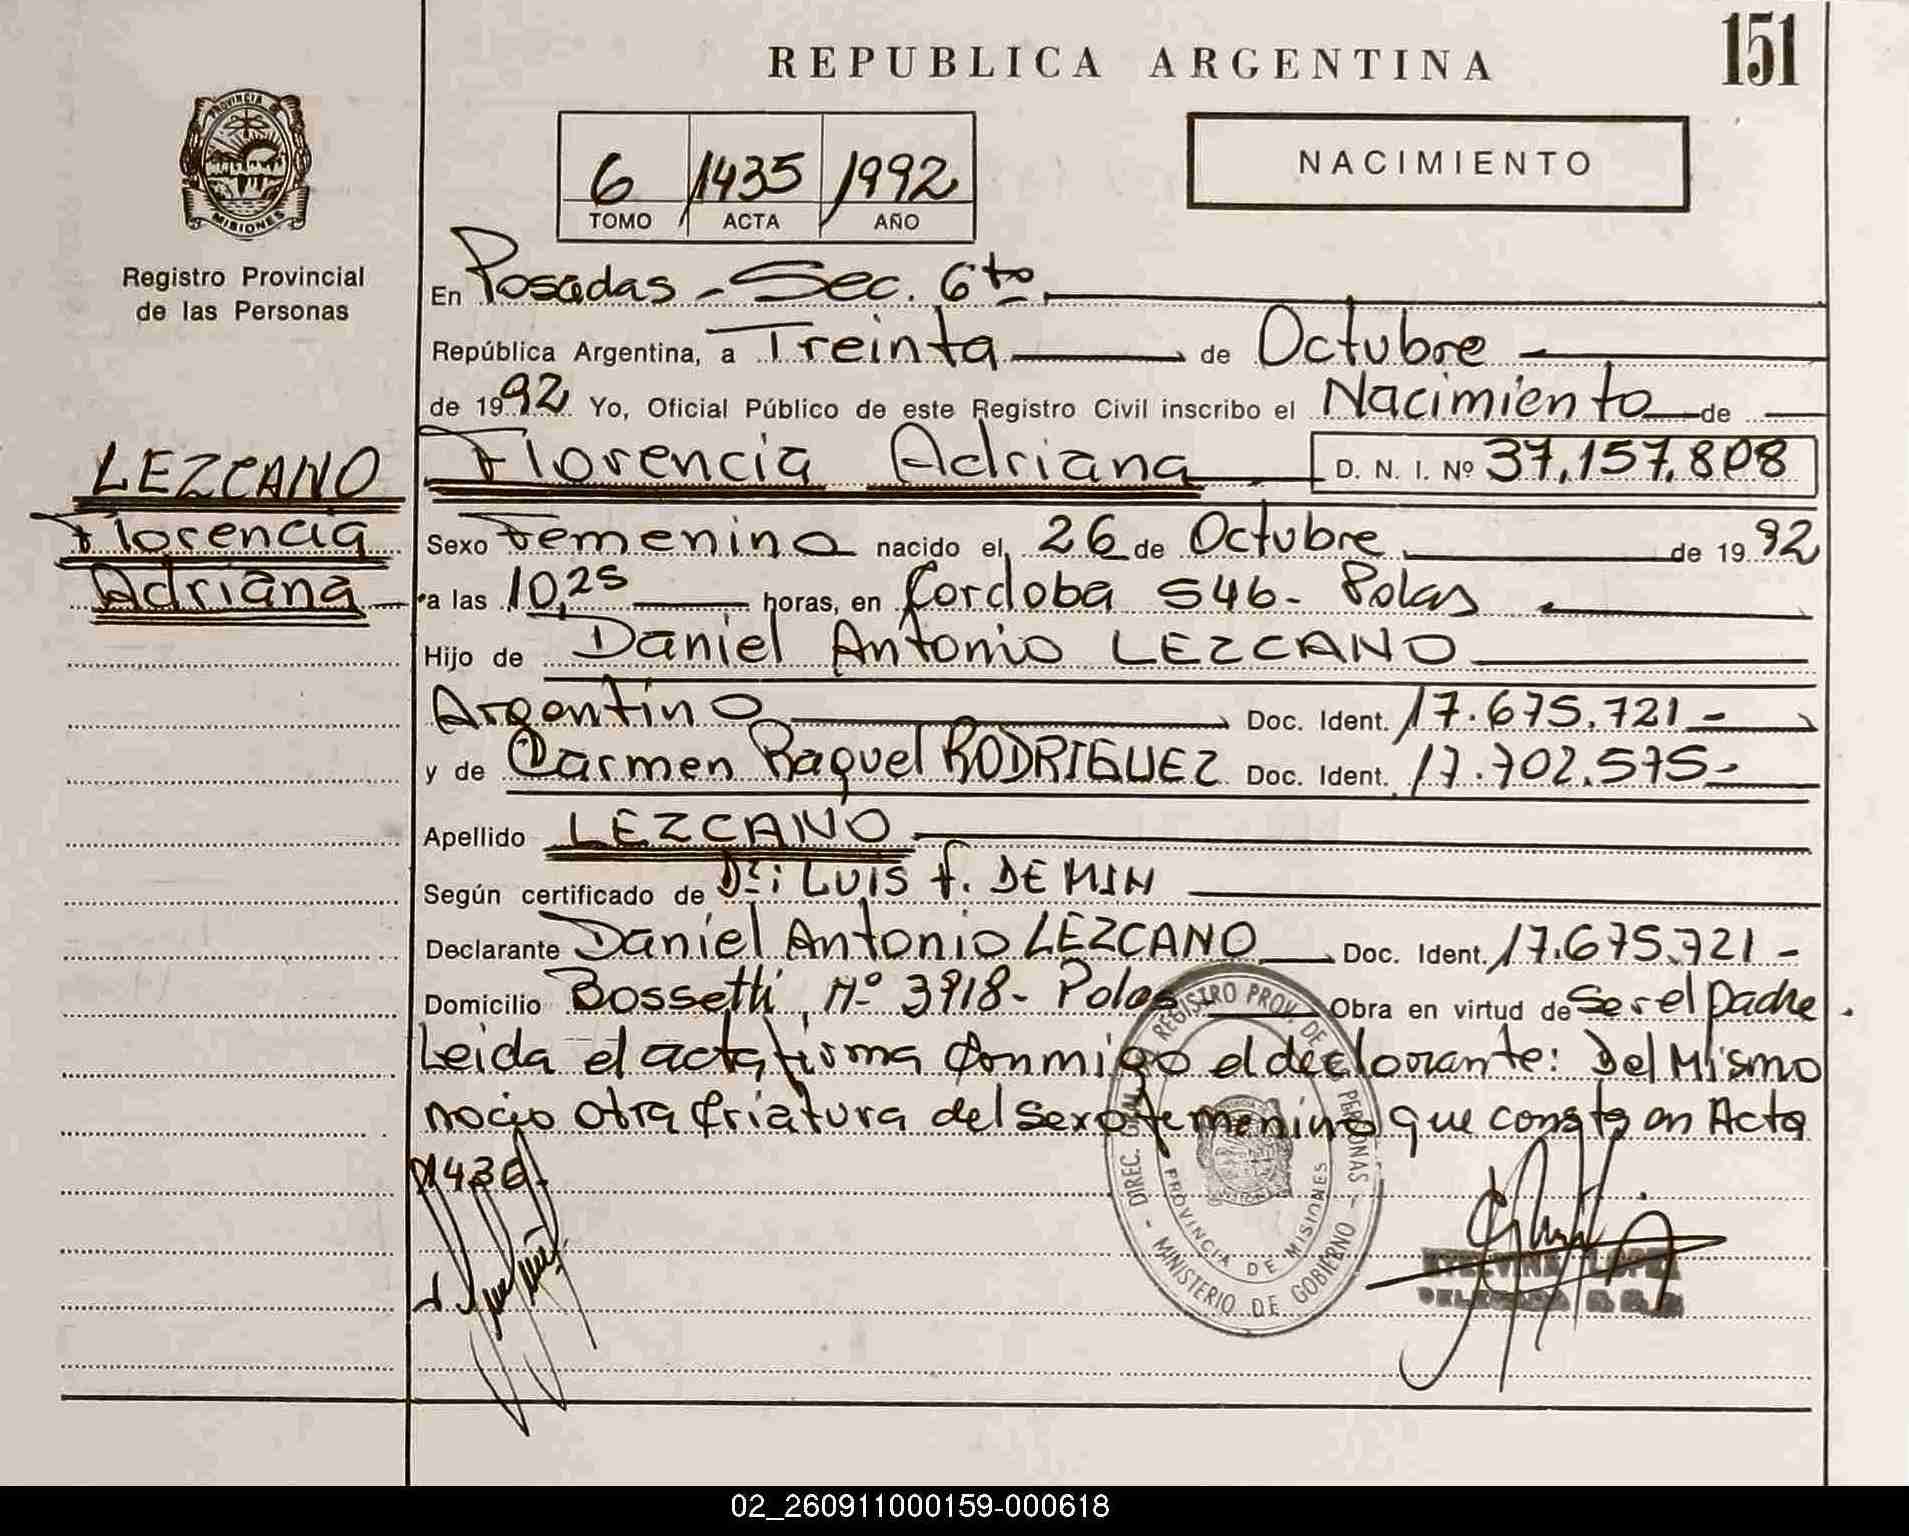 REPUBLICA ARGENTINA
151
PROVINCIA DE
MISIONES
Registro Provincial
de las Personas
6 1435 1992
TOMO ACTA AÑO
NACIMIENTO
En Posadas - Sec. 6to
República Argentina, a Treinta de Octubre
de 1992 Yo, Oficial Público de este Registro Civil inscribo el Nacimiento de
LEZCANO
Florencia
Adriana
Florencia Adriana D. N. I. Nº 37,157,808
Sexo Femenino nacido el, 26 de Octubre de 1992
a las 10,25 horas, en Cordoba 546 - Pdas
Hijo de Daniel Antonio LEZCANO
Argentino Doc. Ident. 17.675.721 -
y de Carmen Raquel RODRIGUEZ Doc. Ident. 17.702.575 -
Apellido LEZCANO
Según certificado de Dr: LUIS F. DEMIN
Declarante Daniel Antonio LEZCANO Doc. Ident. 17.675.721 -
Domicilio Bossetti, Nº 3918 - Pdas Obra en virtud de Ser el padre.
Leida el acta, firma conmigo el declarante: Del Mismo
nacio otra criatura del sexo femenino que consta en Acta
1436.
DIREC. GRAL REGISTRO PROV. DE PERSONAS - MINISTERIO DE GOBIERNO -
PROVINCIA DE MISIONES
LOPEZ
02_260911000159-000618